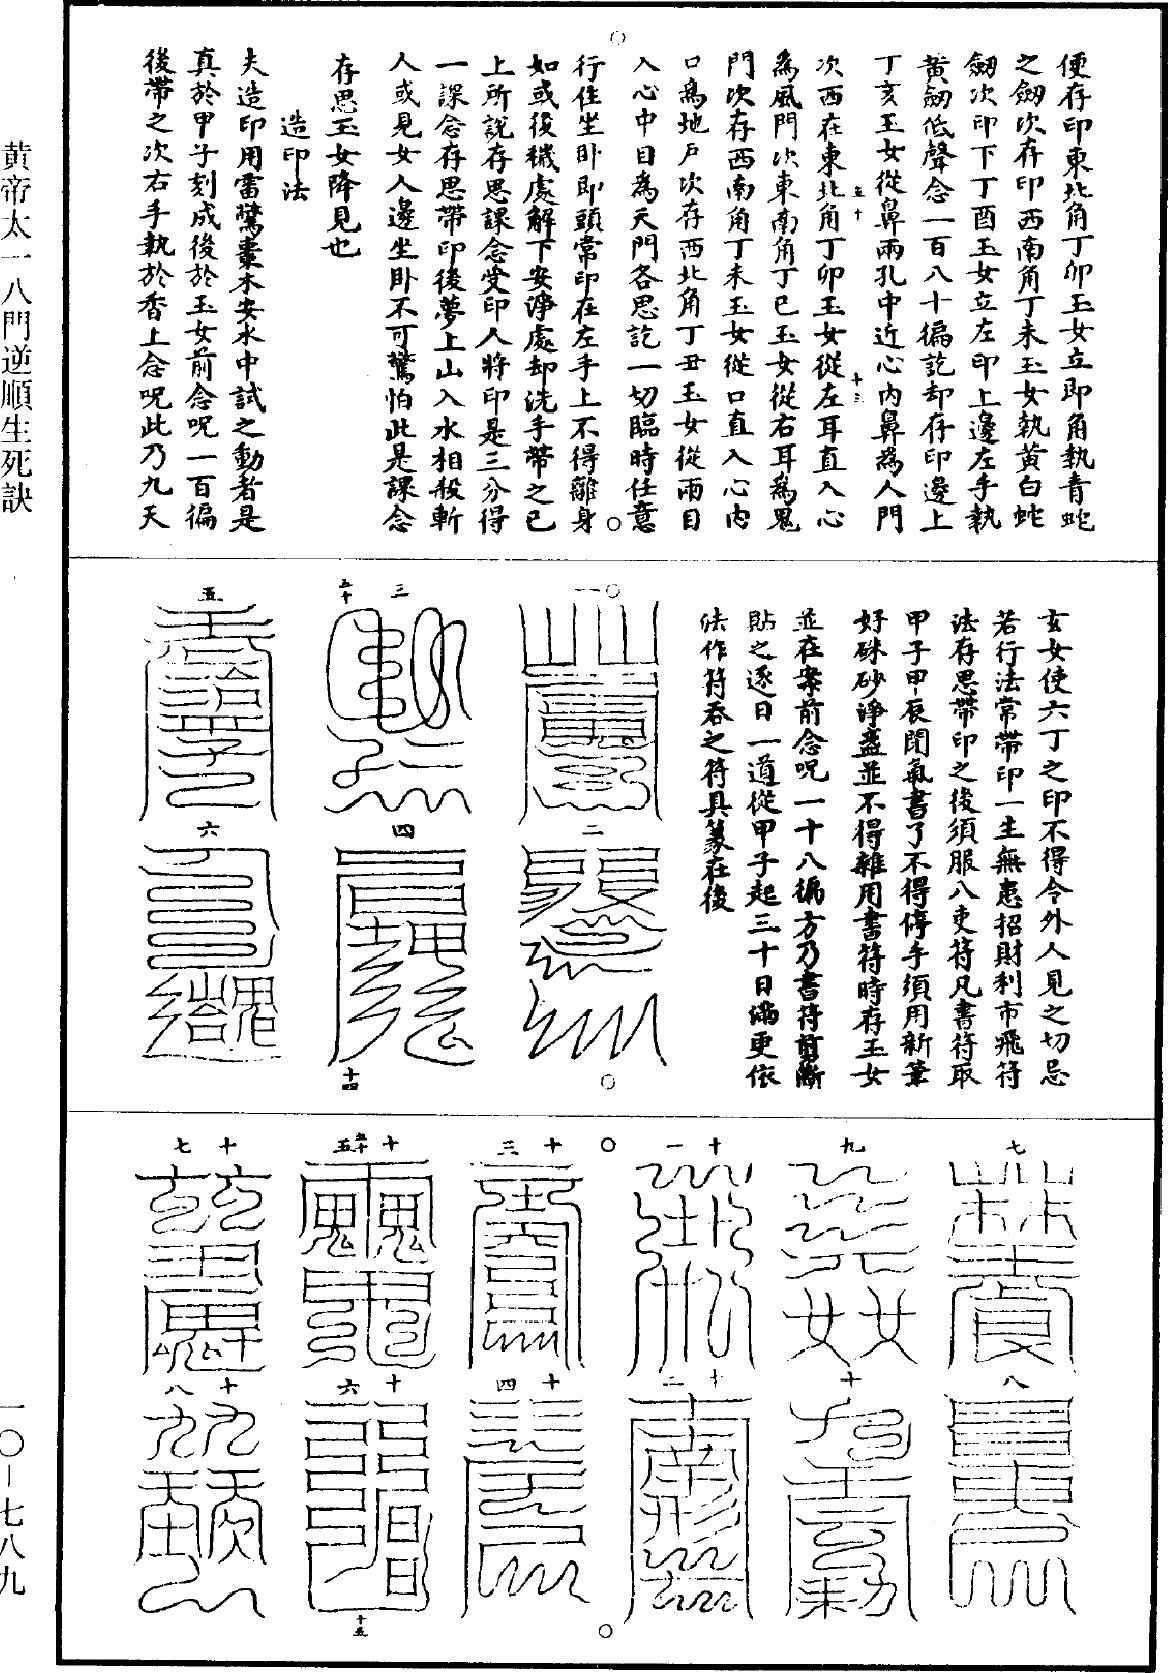 便存印東北角丁卯玉女立即角執青蛇
之劒次存印西南角丁未玉女執黃白蛇
劒次印下丁酉玉女立左印上邊左手執
黃劒低聲念一百八十徧訖却存印邊上
丁亥玉女從鼻兩孔中近心內鼻為人門
次西在東北角丁卯玉女從左耳直入心
五十
十三
為風門次東南角丁巳玉女從右耳為鬼
門次存西南角丁未玉女從口直入心內
口為地戶次存西北角丁丑玉女從兩目
入心中目為天門各思訖一切臨時任意
行住坐卧即頭常印在左手上不得離身
如或後穢處解下安淨處却洗手帶之已
上所說存思課念受印人將印是三分得
一課念存思帶印後夢上山入水相殺斬
人或見女人邊坐卧不可驚怕此是課念
存思玉女降見也
造印法
夫造印用雷驚棗木安水中試之動者是
真於甲子刻成後於玉女前念呪一百徧
後帶之次右手執於香上念呪此乃九天
玄女使六丁之印不得令外人見之切忌
若行法常帶印一生無患招財利市飛符
法存思帶印之後須服八吏符凡書符取
甲子甲辰閉氣書了不得停手須用新筆
好硃砂淨盞並不得雜用書符時存玉女
並在案前念呪一十八徧方乃書符剪斷
貼之逐日一道從甲子起三十日滿更依
法作符吞之符具篆在後
一
二
三
五十
四
十四
五
六
七
八
九
十
十一
十二
十三
十四
十五
五十
十六
十五
十七
十八
黃帝太一八門逆順生死訣
一〇－七八九